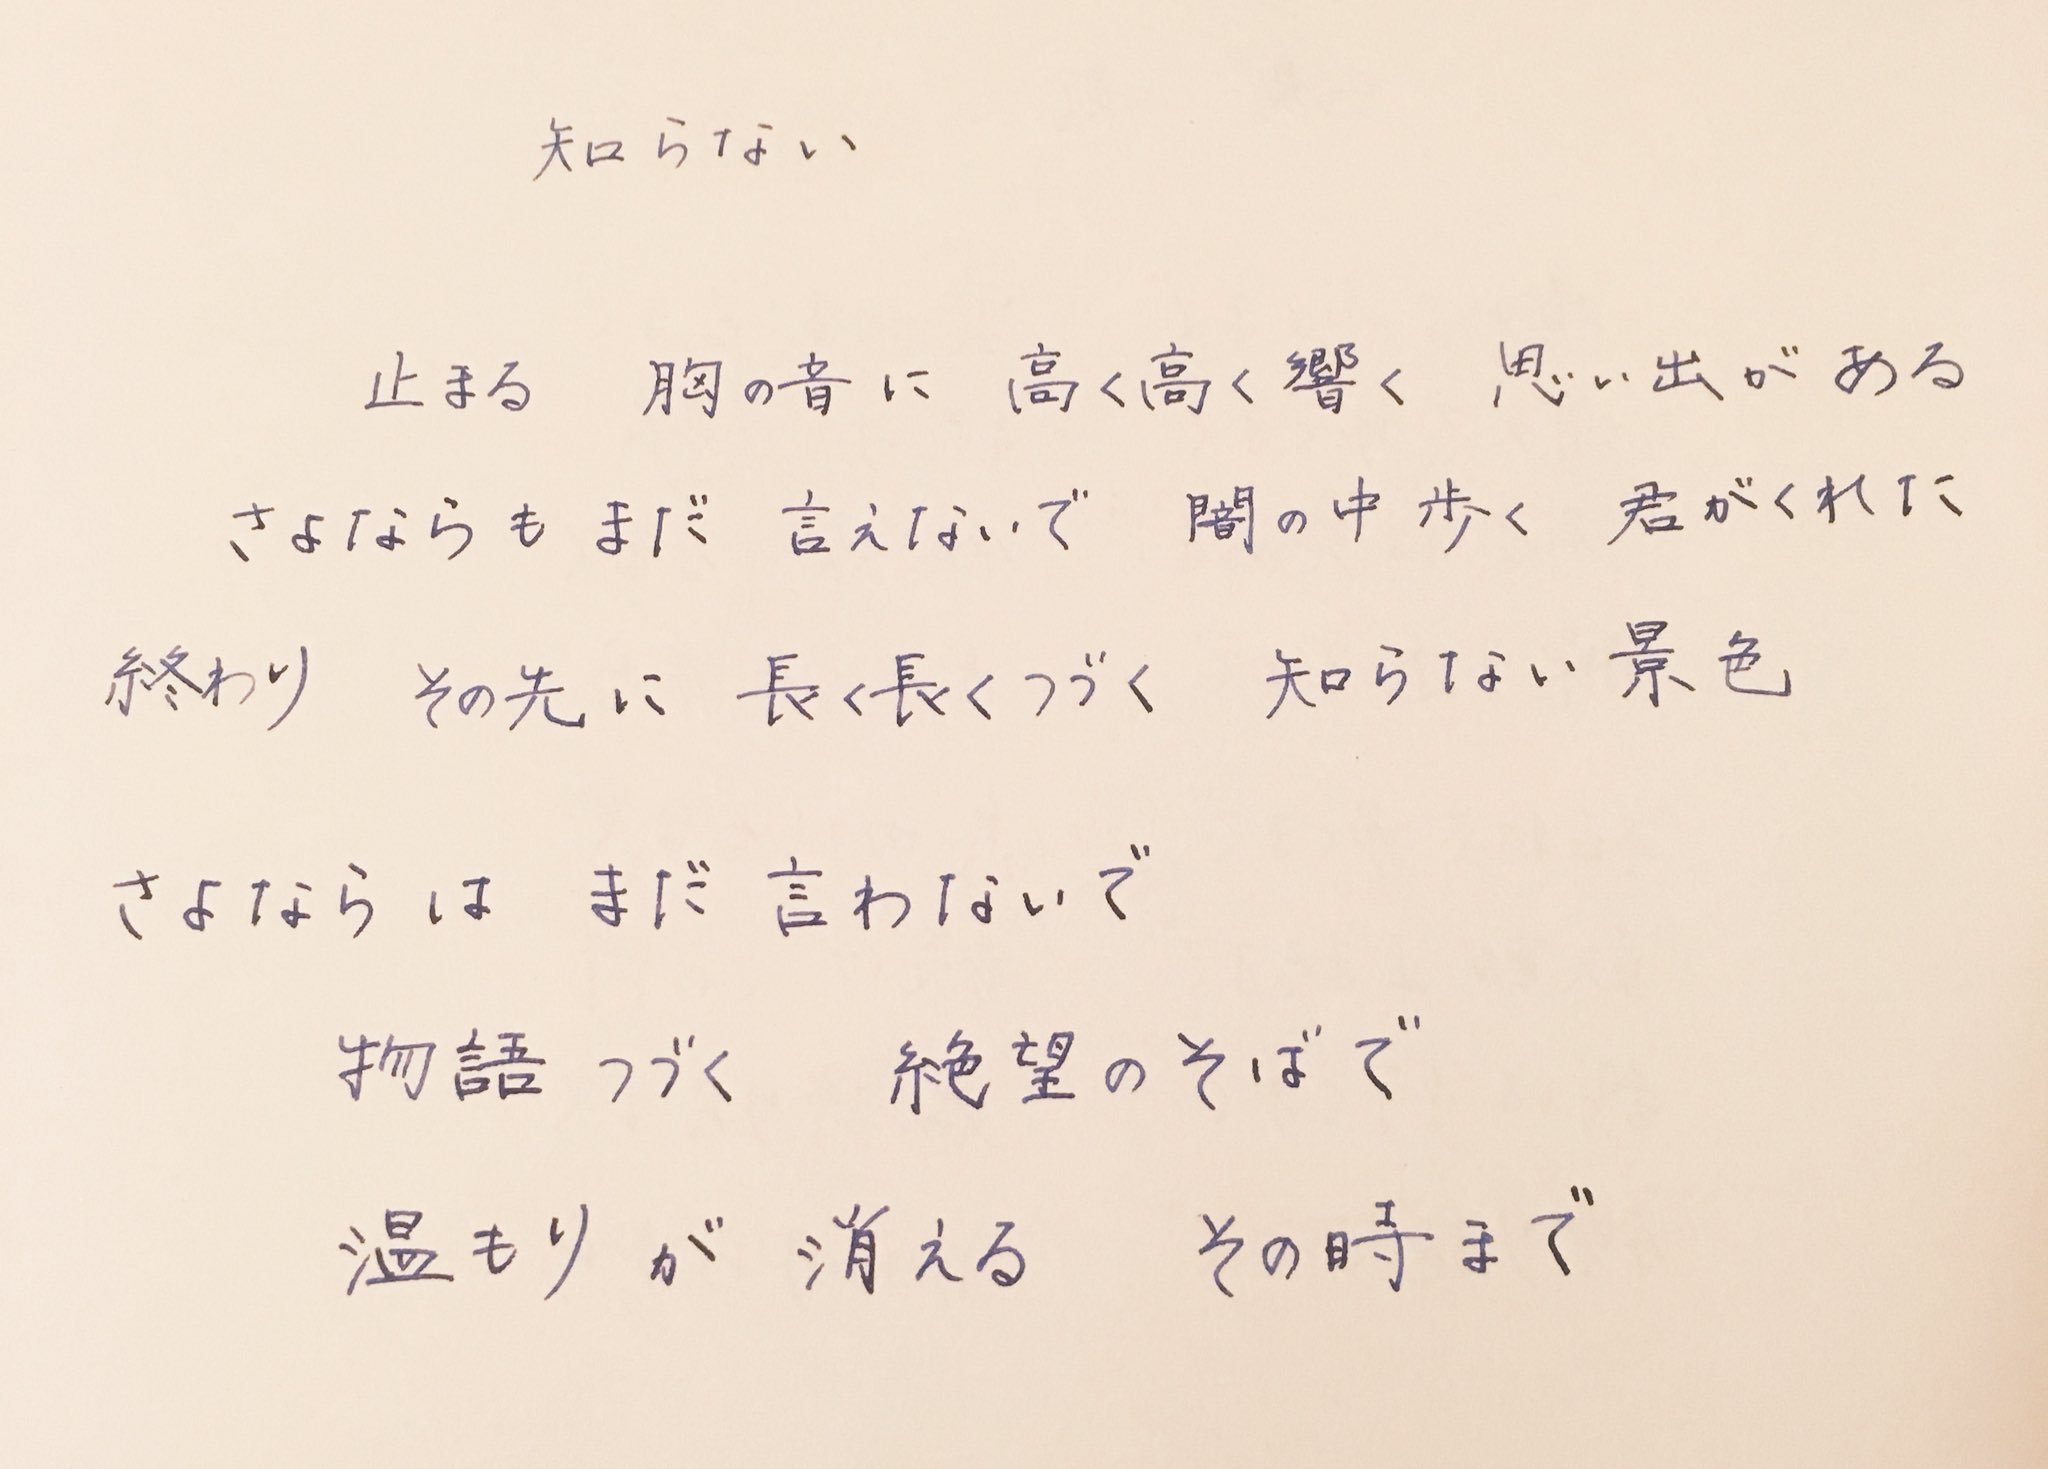 知らない
止まる　胸の音に　高く高く響く　思い出がある
さよならもまだ 言えないで　闇の中歩く　君がくれた
終わり　その先に　長く長くつづく　知らない景色
さよならは　まだ 言わないで
物語つづく　絶望のそばで
温もりが 消える　その時まで